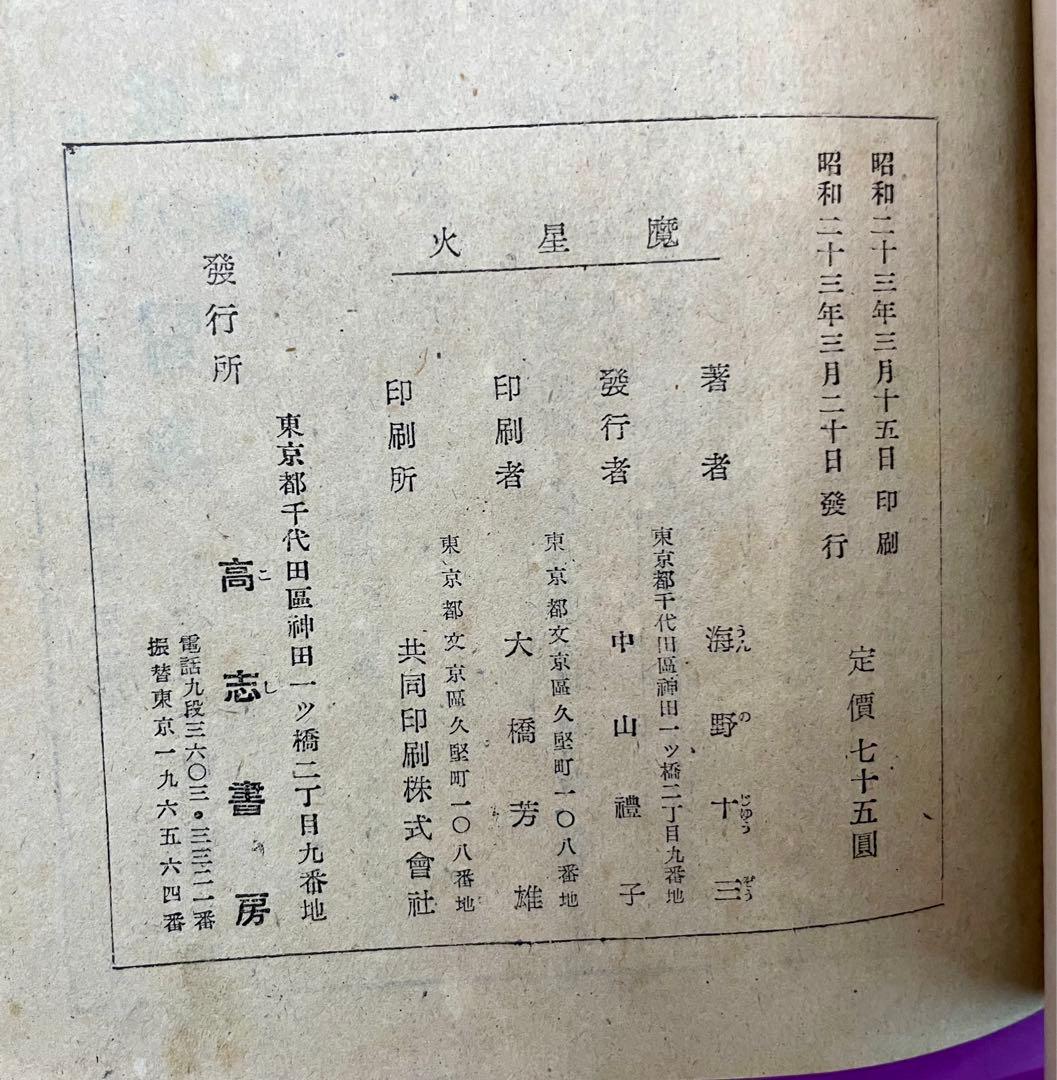 昭和二十三年三月十五日印刷
昭和二十三年三月二十日發行
定價七十五圓
火星魔
著者
海野十三
うんのじゆうざう
發行者
東京都千代田區神田一ツ橋二丁目九番地
中山禮子
印刷者
東京都文京區久堅町一〇八番地
大橋芳雄
印刷所
東京都文京區久堅町一〇八番地
共同印刷株式會社
發行所
東京都千代田區神田一ツ橋二丁目九番地
高志書房
こし
電話九段三六〇三・三三二一番
振替東京一九六五六四番